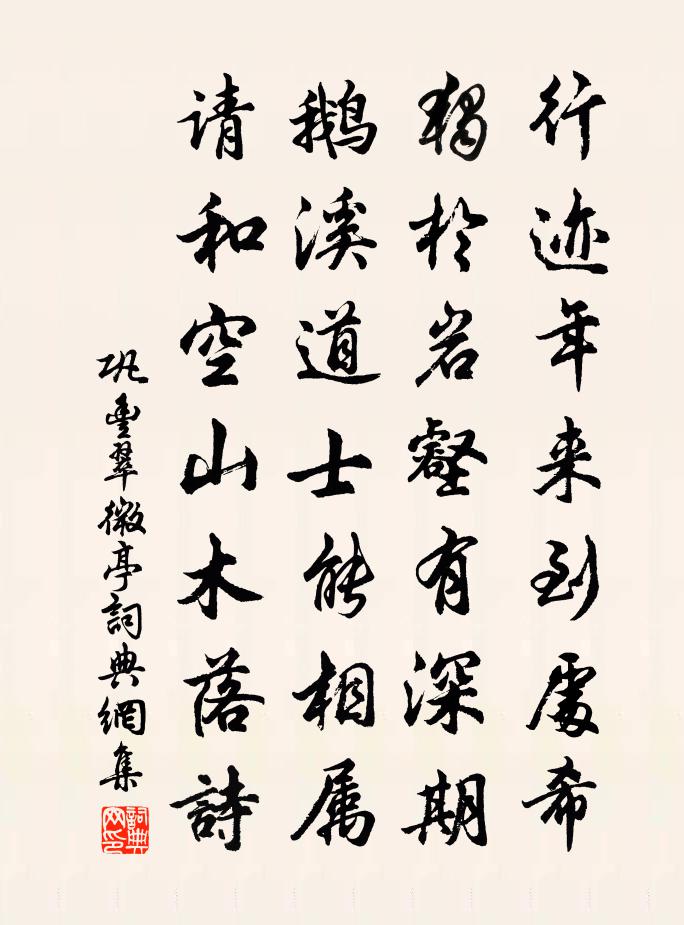 行迹年来到處希
独於岩壑有深期
鹅溪道士能相属
请和空山木落詩
巩豊翠微亭詞典網集
詞典网印